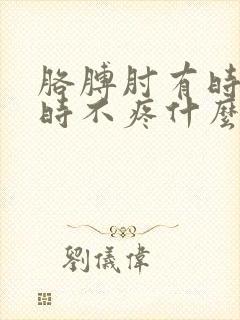 胳膊肘有時
時不疼什麼
劉儀偉